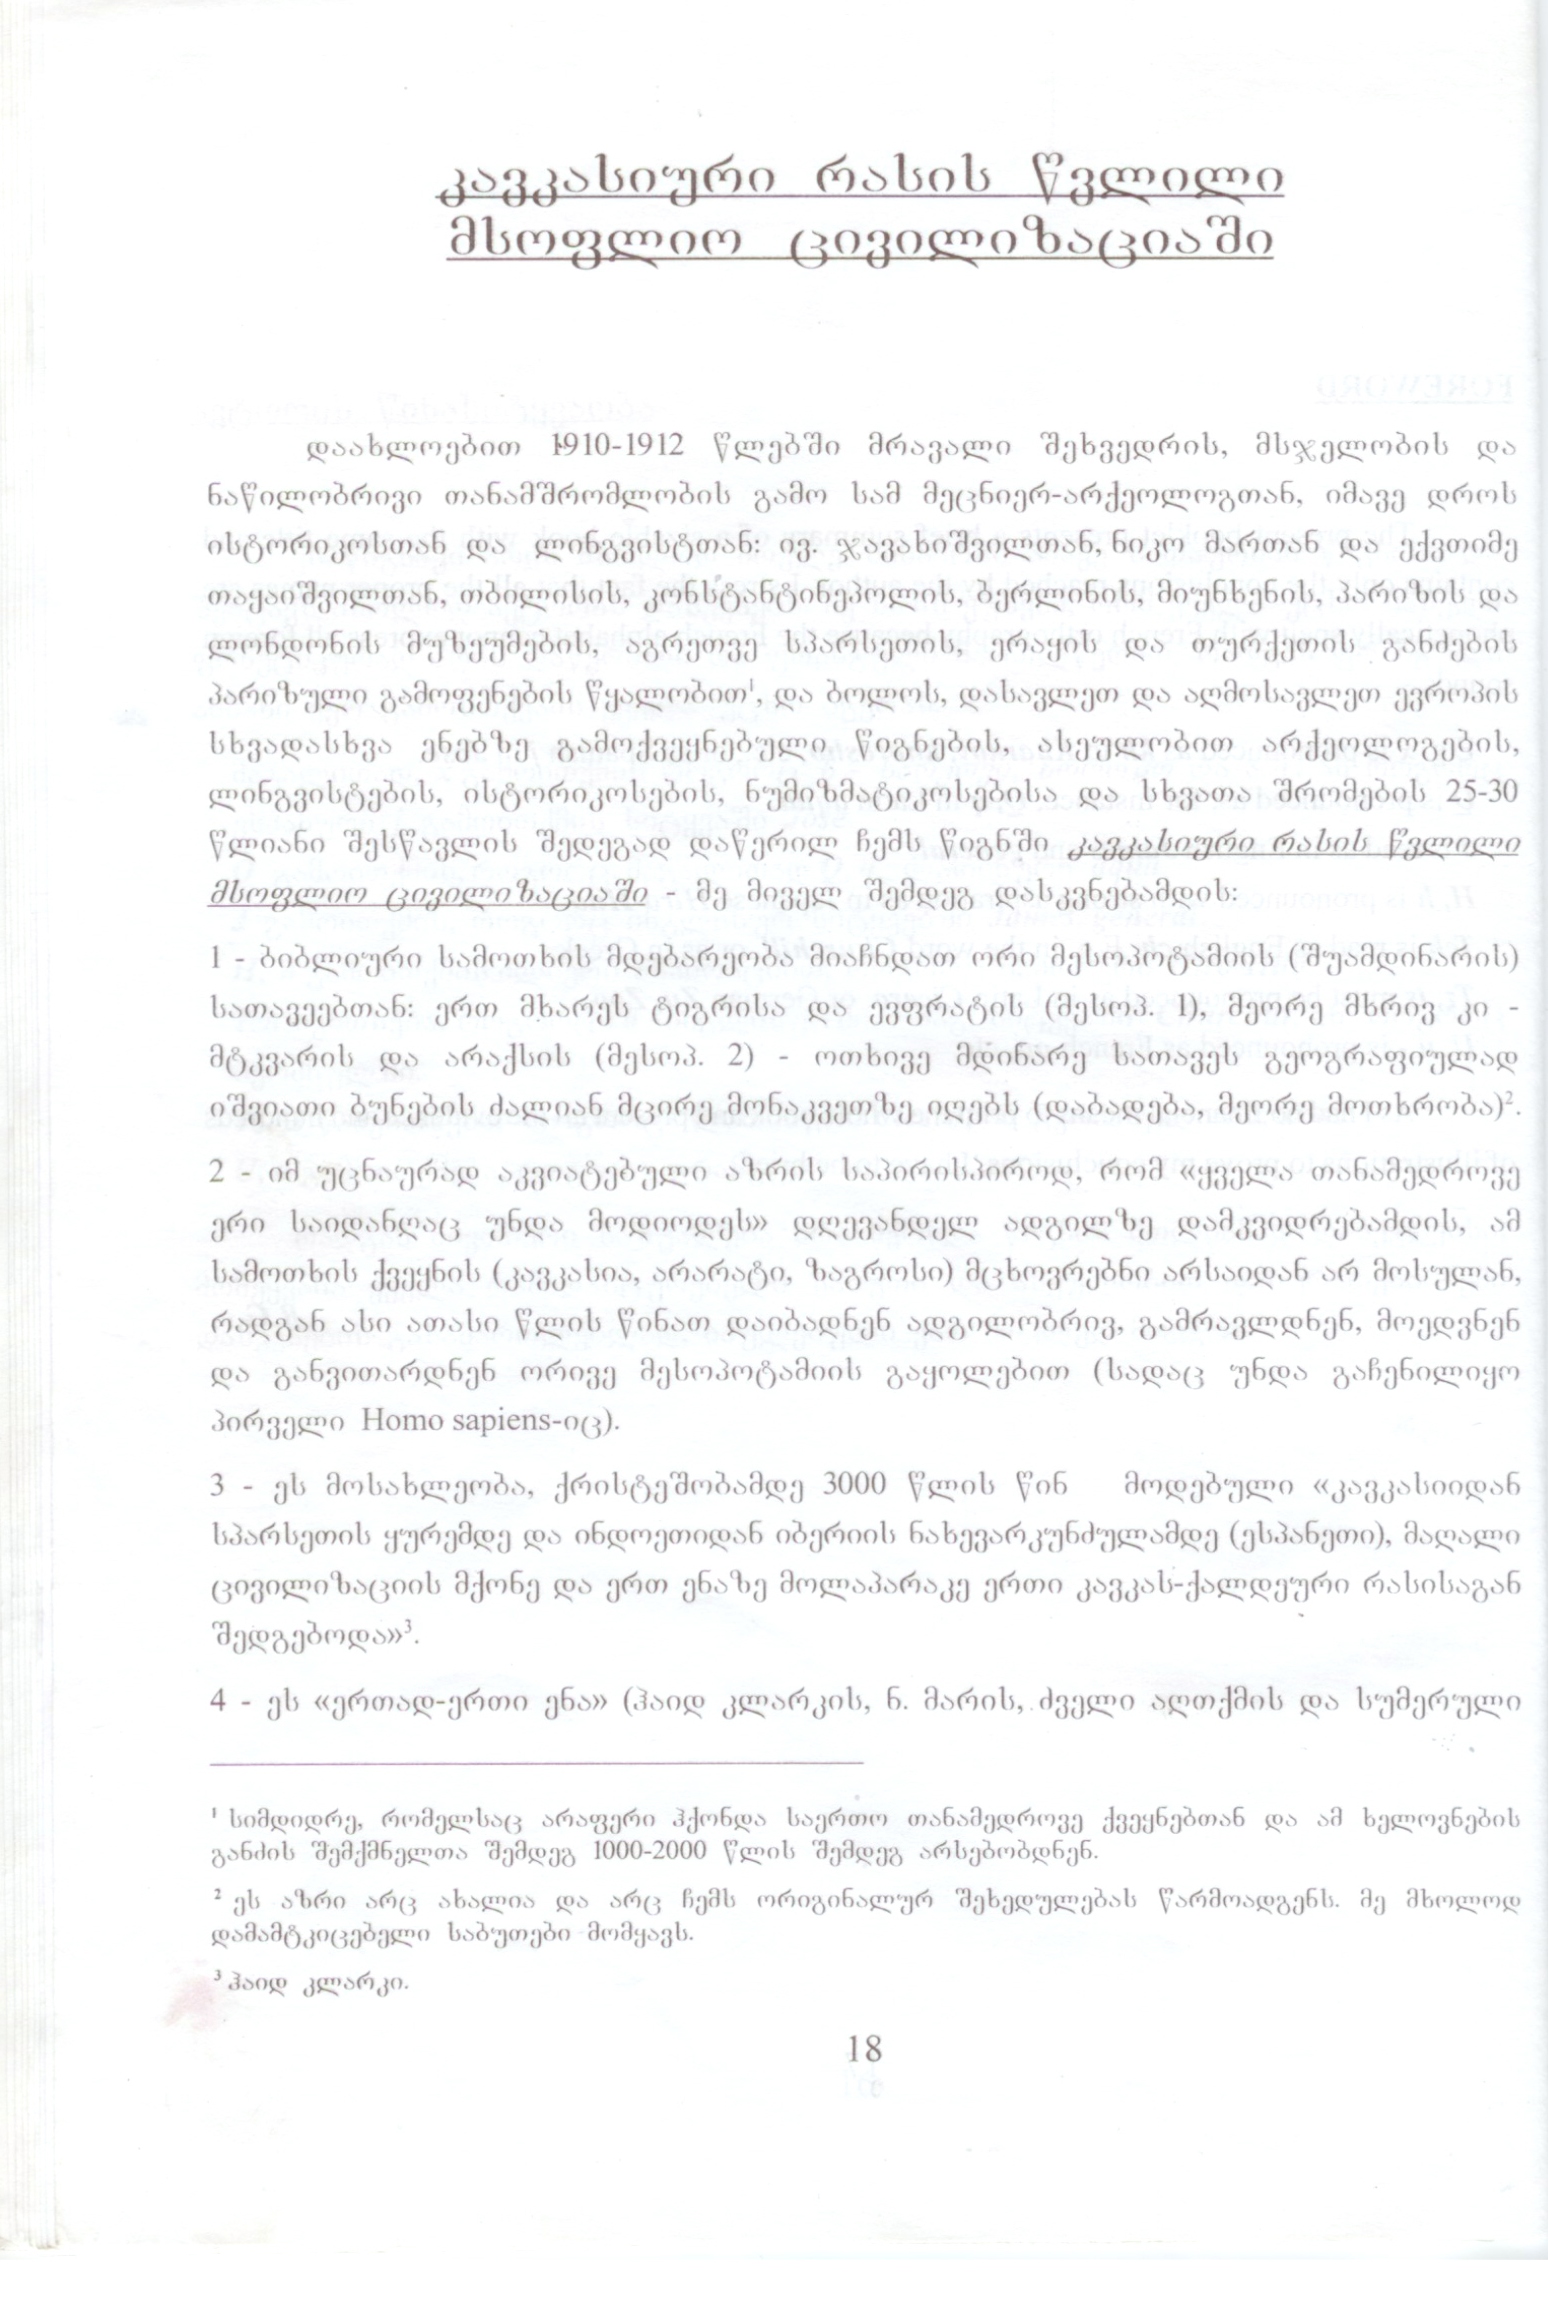 კავკასიური რასის წვლილი
მსოფლიო ცივილიზაციაში
დაახლოებით 1910-1912 წლებში მრავალი შეხვედრის, მსჯელობის და
ნაწილობრივი თანამშრომლობის გამო სამ მეცნიერ-არქეოლოგთან, იმავე დროს
ისტორიკოსთან და ლინგვისტთან: ივ. ჯავახიშვილთან, ნიკო მართან და ექვთიმე
თაყაიშვილთან, თბილისის, კონსტანტინეპოლის, ბერლინის, მიუნხენის, პარიზის და
ლონდონის მუზეუმების, აგრეთვე სპარსეთის, ერაყის და თურქეთის განძების
პარიზული გამოფენების წყალობით¹, და ბოლოს, დასავლეთ და აღმოსავლეთ ევროპის
სხვადასხვა ენებზე გამოქვეყნებული წიგნების, ასეულობით არქეოლოგების,
ლინგვისტების, ისტორიკოსების, ნუმიზმატიკოსებისა და სხვათა შრომების 25-30
წლიანი შესწავლის შედეგად დაწერილ ჩემს წიგნში კავკასიური რასის წვლილი
მსოფლიო ცივილიზაციაში - მე მიველ შემდეგ დასკვნებამდის:
1 - ბიბლიური სამოთხის მდებარეობა მიაჩნდათ ორი მესოპოტამიის (შუამდინარის)
სათავეებთან: ერთ მხარეს ტიგრისა და ევფრატის (მესოპ. 1), მეორე მხრივ კი -
მტკვარის და არაქსის (მესოპ. 2) - ოთხივე მდინარე სათავეს გეოგრაფიულად
იშვიათი ბუნების ძალიან მცირე მონაკვეთზე იღებს (დაბადება, მეორე მოთხრობა)².
2 - იმ უცნაურად აკვიატებული აზრის საპირისპიროდ, რომ «ყველა თანამედროვე
ერი საიდანღაც უნდა მოდიოდეს» დღევანდელ ადგილზე დამკვიდრებამდის, ამ
სამოთხის ქვეყნის (კავკასია, არარატი, ზაგროსი) მცხოვრებნი არსაიდან არ მოსულან,
რადგან ასი ათასი წლის წინათ დაიბადნენ ადგილობრივ, გამრავლდნენ, მოედვნენ
და განვითარდნენ ორივე მესოპოტამიის გაყოლებით (სადაც უნდა გაჩენილიყო
პირველი Homo sapiens-იც).
3 - ეს მოსახლეობა, ქრისტეშობამდე 3000 წლის წინ მოდებული «კავკასიიდან
სპარსეთის ყურემდე და ინდოეთიდან იბერიის ნახევარკუნძულამდე (ესპანეთი), მაღალი
ცივილიზაციის მქონე და ერთ ენაზე მოლაპარაკე ერთი კავკას-ქალდეური რასისაგან
შედგებოდა»³.
4 - ეს «ერთად-ერთი ენა» (ჰაიდ კლარკის, ნ. მარის, ძველი აღთქმის და სუმერული
¹ სიმდიდრე, რომელსაც არაფერი ჰქონდა საერთო თანამედროვე ქვეყნებთან და ამ ხელოვნების
განძის შემქმნელთა შემდეგ 1000-2000 წლის შემდეგ არსებობდნენ.
² ეს აზრი არც ახალია და არც ჩემს ორიგინალურ შეხედულებას წარმოადგენს. მე მხოლოდ
დამამტკიცებელი საბუთები მომყავს.
³ ჰაიდ კლარკი.
18